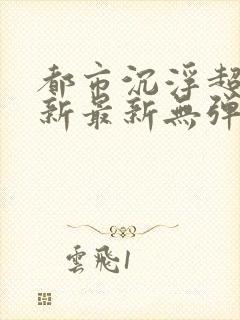 都市沉浮超
新最新無彈
雲飛1